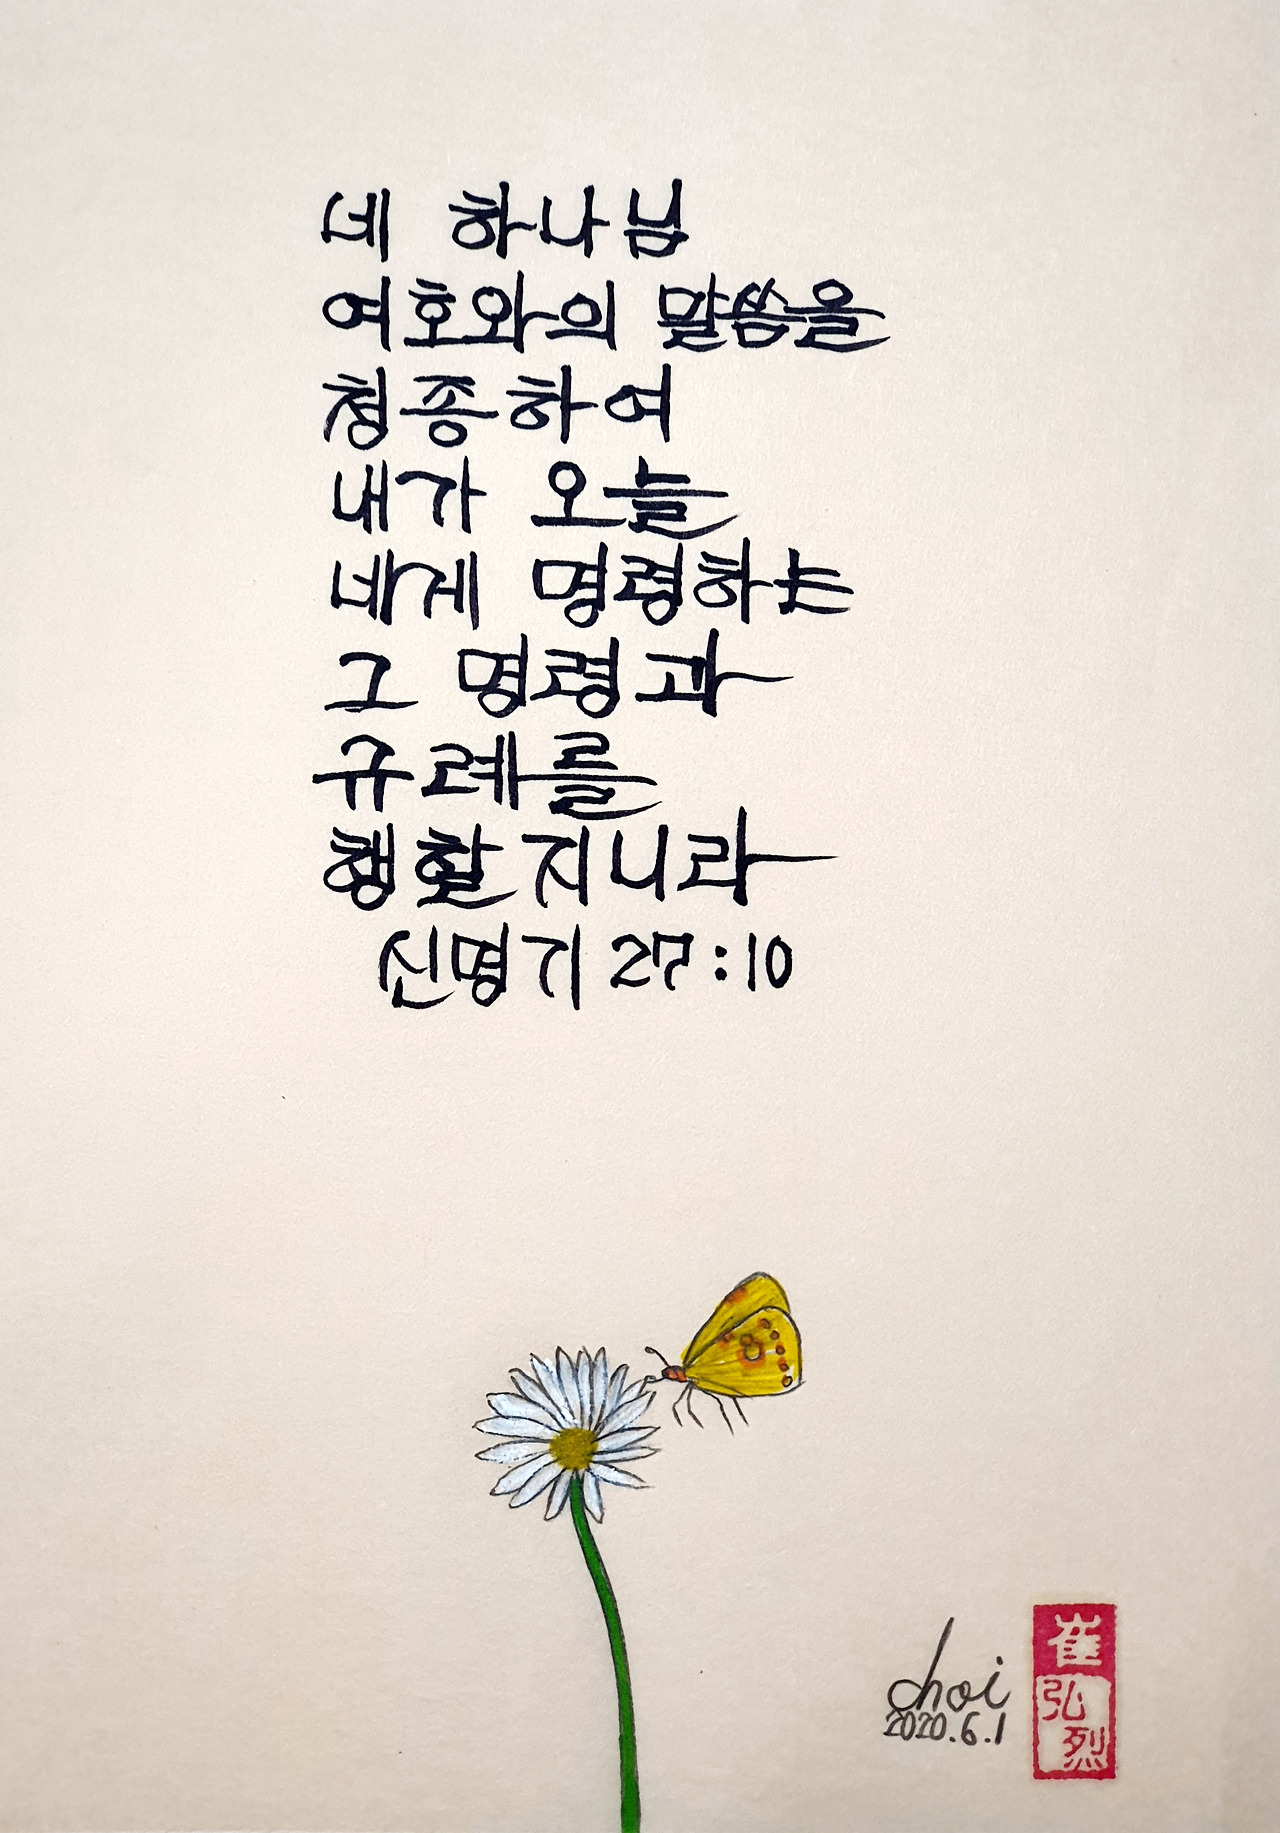 네 하나님
여호와의 말씀을
청종하여
내가 오늘
네게 명령하는
그 명령과
규례를
행할지니라
신명기 27:10
choi
2020.6.1
崔
弘
烈